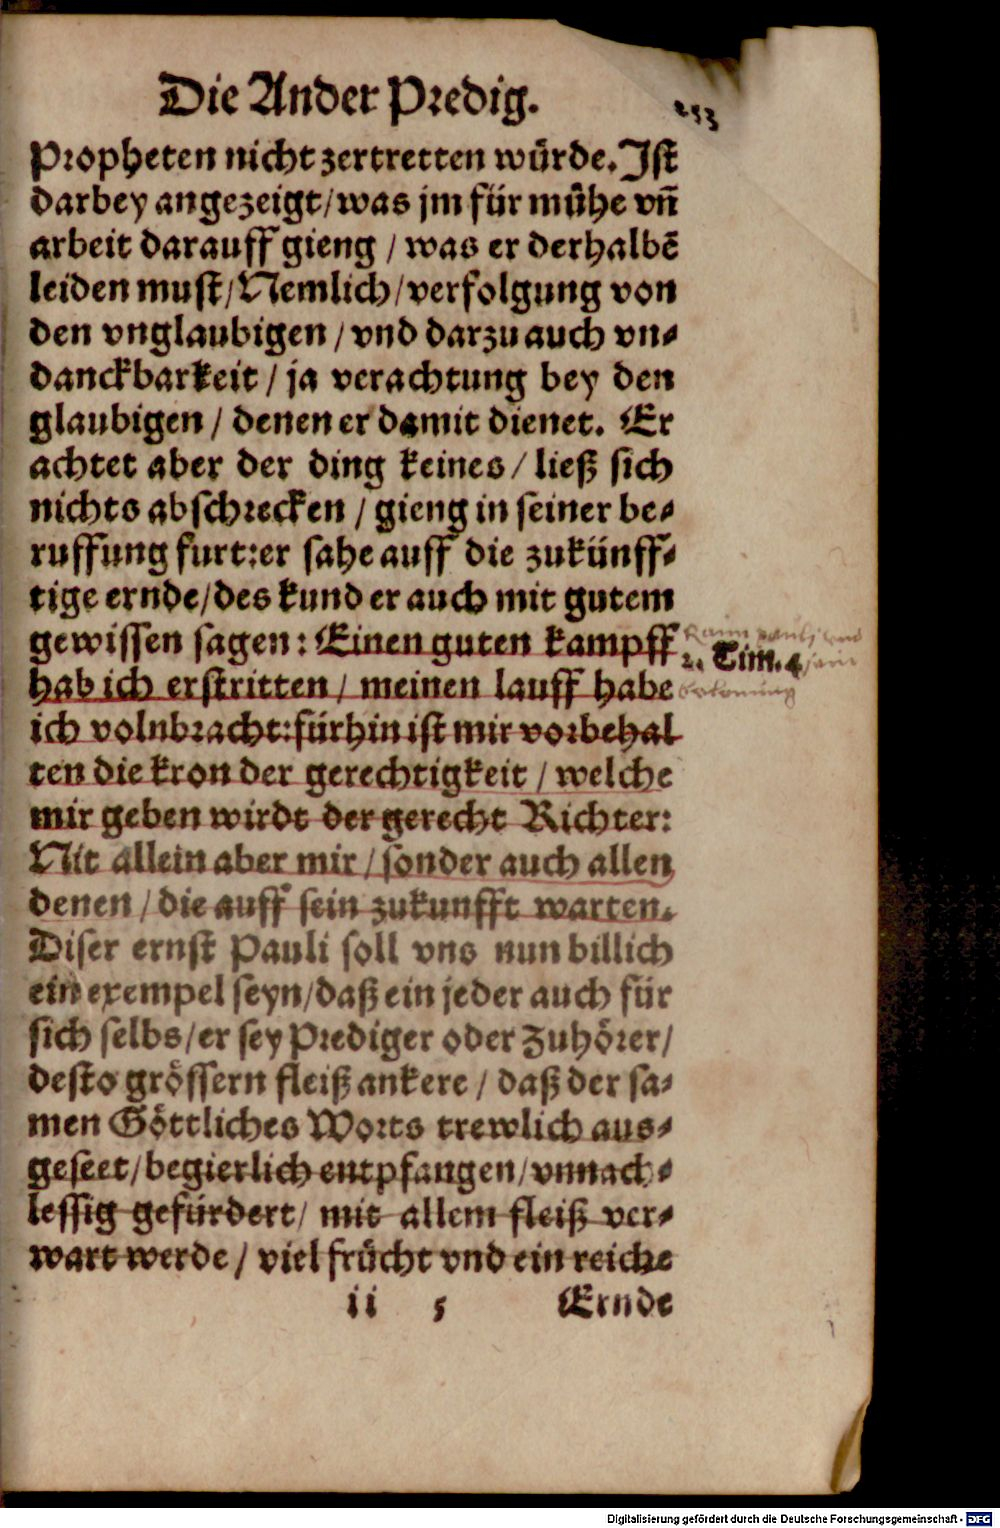 Die Ander Predig.
253
Propheten nicht zertretten würde. Ist
darbey angezeigt/was jm für mühe vñ
arbeit darauff gieng / was er derhalbẽ
leiden must/Nemlich/verfolgung von
den vnglaubigen / vnd darzu auch vn-
danckbarkeit / ja verachtung bey den
glaubigen / denen er damit dienet. Er
achtet aber der ding keines / ließ sich
nichts abschrecken / gieng in seiner be-
ruffung furt:er sahe auff die zukünff-
tige ernde/des kund er auch mit gutem
gewissen sagen: Einen guten kampff
2. Tim. 4
hab ich erstritten / meinen lauff habe
ich volnbracht:fürhin ist mir vorbehal
ten die kron der gerechtigkeit / welche
mir geben wirdt der gerecht Richter:
Nit allein aber mir / sonder auch allen
denen / die auff sein zukunfft warten.
Diser ernst Pauli soll vns nun billich
ein exempel seyn/daß ein jeder auch für
sich selbs/er sey Prediger oder Zuhörer/
desto grössern fleiß ankere / daß der sa-
men Göttliches Worts trewlich aus-
geseet/begierlich entpfangen/vnnach-
lessig gefürdert/ mit allem fleiß ver-
wart werde / viel frücht vnd ein reiche
ii 5 Ernde
Digitalisierung gefördert durch die Deutsche Forschungsgemeinschaft - DFG